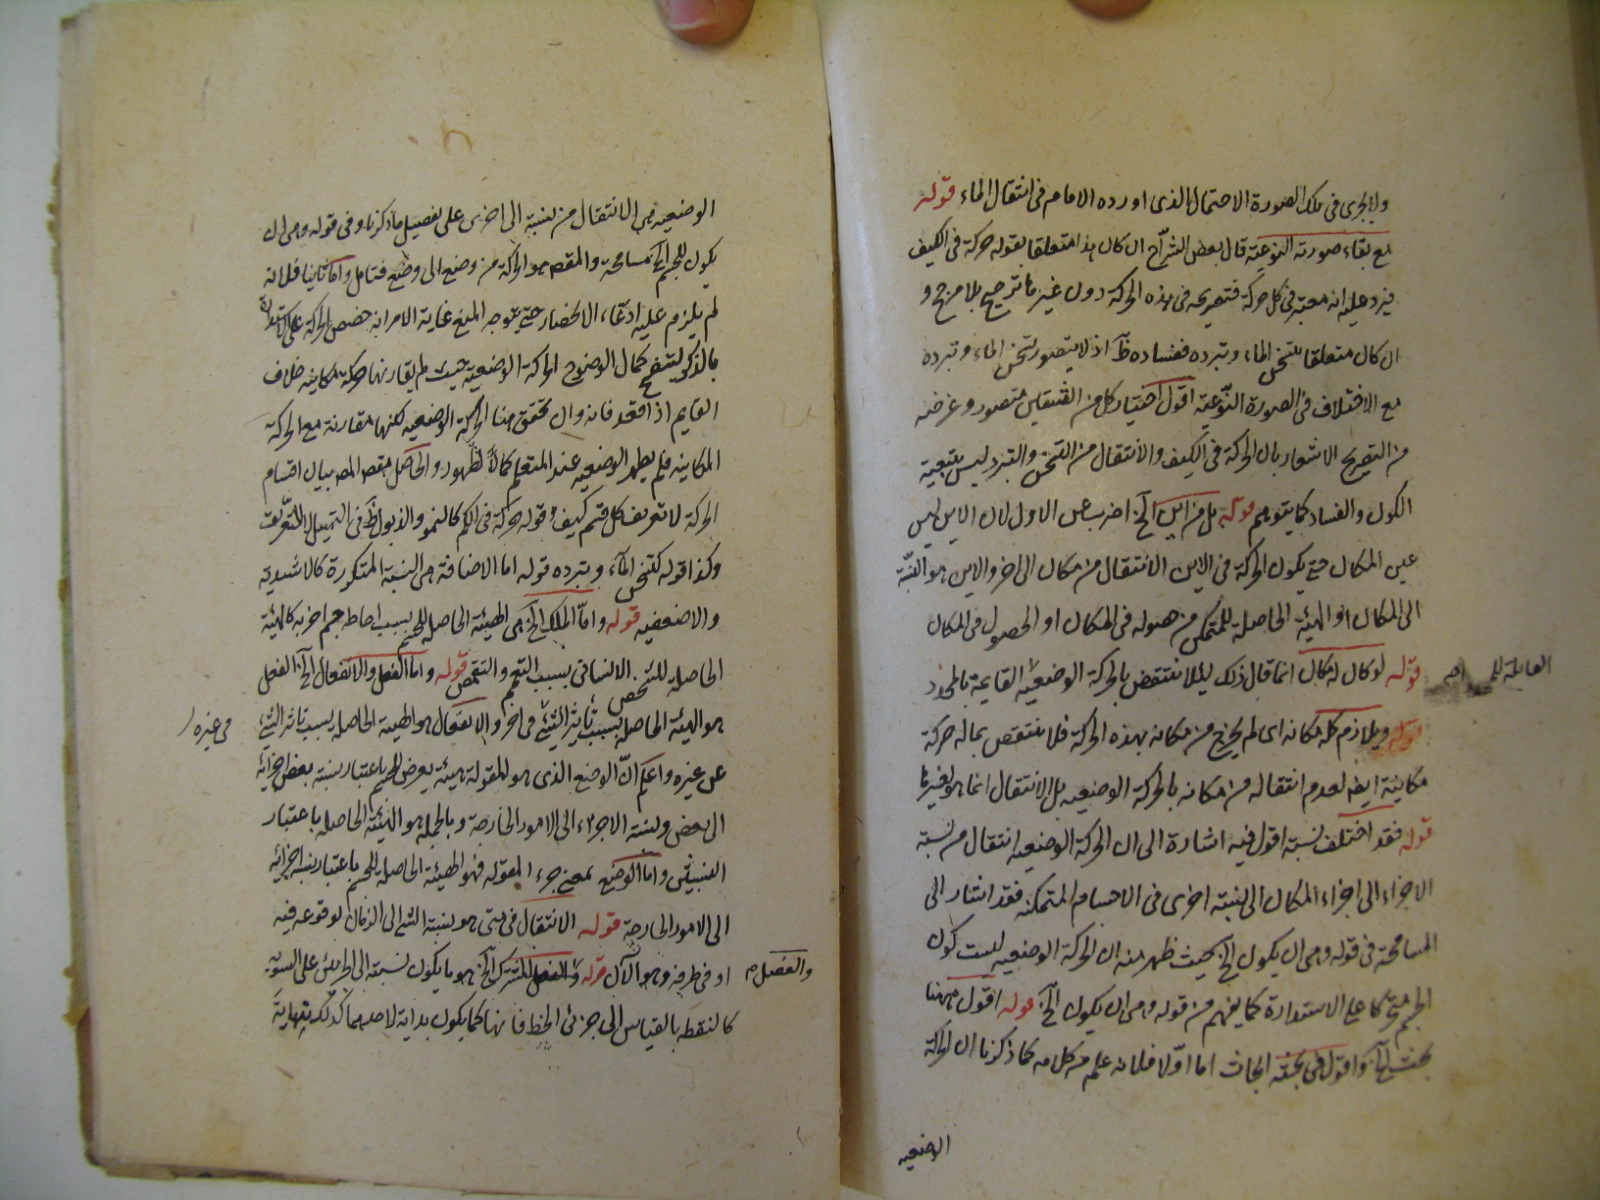 ولا يجرى فى تلك الصورة الاحتمال الذى اورده الامام فى انتقال الماء قوله
مع بقاء صورته النوعية قال بعض الشراح ان كان هذا متعلقا بقوله حركة فى الكيف
فيرد عليه انه معتبر فى كل حركة فتصريحه فى هذه الحركة دون غيرها ترجيح بلا مرجح و
ان كان متعلقا بتسخن الماء وتبرده ففساده ظ اذ لا يتصور تسخن الماء وتبرده
مع الاختلاف فى الصورة النوعية اقول اختيار كل من الشقين متصور وغرضه
من التصريح الاشعار بان الحركة فى الكيف والانتقال من التسخن والتبرد ليس بتبعية
الكون والفساد كما يتوهم قوله بل من اين الخ اضرب عن الاول لان الاين ليس
عين المكان حتى يكون الحركة فى الاين الانتقال من مكان الى اخر والاين هو النسبة
الى المكان او الهيئة الحاصلة للمتمكن من حصوله فى المكان او الحصول فى المكان
قوله لو كان له مكان انما قال ذلك لئلا ينتقض بالحركة الوضعية القايمة بالمحدد
قوله ويلازم كله مكانه اى لم يخرج من مكانه بهذه الحركة فلا ينتقض بماله حركة
مكانية ايضا لعدم انتقاله من مكانه بالحركة الوضعيه بل الانتقال انما هو بغيرها
قوله فقد اختلف نسبة اقول فيه اشارة الى ان الحركة الوضعيه انتقال من نسبة
الاجزاء الى اجزاء المكان الى نسبة اخرى فى الاجسام المتمكنه فقد اشار الى
المسامحة فى قوله وهى ان يكون الخ بحيث ظهر منه ان الحركة الوضعيه ليست كون
الجسم متحركا على الاستدارة كما يفهم من قوله وهى ان يكون الخ قوله اقول ههنا
بحث الخ واقول فى بحثه ابحاث اما اولا فلانه علم من كلامه كما ذكرنا ان الحركة
الوضعيه
الوضعيه هى الانتقال من نسبة الى اخرى على تفصيل ما ذكرنا وفى قوله وهى ان
يكون للجسم الخ مسامحة والمقصد هو الحركة من وضع الى وضع فتامل واما ثانيا فلانه
لم يلزم عليه ادعاء الانحصار حتى يتوجه المنع غاية الامر انه خصص الحركة على الاستدارة
بالذكر ليتضح كمال الوضوح الحركة الوضعية حيث لم يقارنها حركة مكانيه خلاف
القايم اذا قعد فانه وان تحقق هنا الحركة الوضعيه لكنها مقارنة مع الحركة
المكانيه فلم يظهر الوضعيه عند المتعلم كمال الظهور والحاصل مقصد المصه بيان اقسام
الحركة لا تعريف كل قسم كيف وقوله حركة فى الكم كالنمو والذبول ظ فى التمثيل لا التعريف
وكذا قوله كتسخن الماء وتبرده قوله اما الاضافة هى النسبة المتكررة كالاشدية
والاضعفيه قوله واما الملك الخ هى الهيئة الحاصله للجسم بسبب احاطه جسم اخر به كالهيئة
الحاصله للشخص الانسانى بسبب التعمم والتقمص قوله واما الفعل والانفعال الخ الفعل
هو الهيئة الحاصله بسبب تاثير الشئ فى اخر والانفعال هو الهيئة الحاصله بسبب تاثر الشئ
فى غيره
عن غيره واعلم ان الوضع الذى هو المقوله هيئة يعرض للجسم باعتبار نسبة بعض اجزائه
الى بعض ونسبة الاجزاء الى الامور الخارجة وبالجمله هو الهيئة الحاصله باعتبار
النسبتين واما الوضع بمعنى جزء المقوله فهو الهيئة الحاصله للجسم باعتبار نسبة اجزائه
الى الامور الخارجة قوله الانتقال فى متى هو نسبة الشئ الى الزمان بوقوعه فيه
او فى طرفه وهو الان قوله والفصل المشترك الخ هو ما يكون نسبته الى الجزئين على السوية
والفصل
كالنقطه بالقياس الى جزئى الخط فانها كما يكون بداية لاحدهما كذلك نهاية